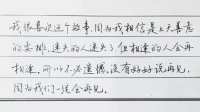 我很喜欢这个故事，因为我相信是上天善意
的安排，迷失的人迷失了，但相逢的人会再
相逢，所以不必遗憾，没有好好说再见，
因为我们一定会再见。